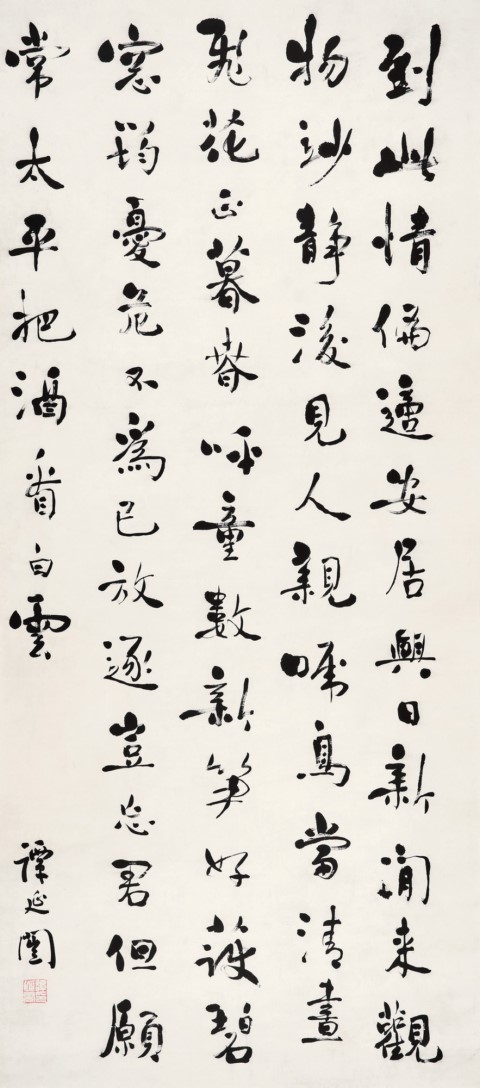 到此情偏適安居興日新閒來觀
物妙靜後見人親啼鳥當清晝
飛花正暮春呼童數新筍好護碧
窓筠憂危不為己放逐豈忘君但願
常太平把酒看白雲
譚延闓